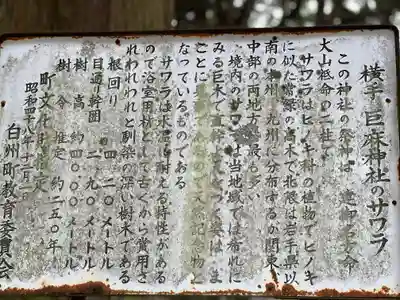 横手 巨麻神社のサワラ
この神社の祭神は 建御名方命
大山祇命の二柱で
サワラはヒノキ科の植物でヒノキ
に似た常緑の高木で北限は岩手県以
南の本州、九州に分布するが関東
中部の両地方に最も多い
境内のサワラは当地域では稀れに
みる巨木で直幹としてのびた姿はま
ことに
なっているものである
サワラは水に耐える特性がある
ので浴室用材として古くから賞用さ
れわれわれと馴染の深い樹木である
根回り 四、二〇メートル
目通り幹囲 二、九〇メートル
樹高 約四〇、〇〇メートル
樹令 推定 約二五〇年
町文化財指定
昭和四十八年十二月一日
白州町教育委員会